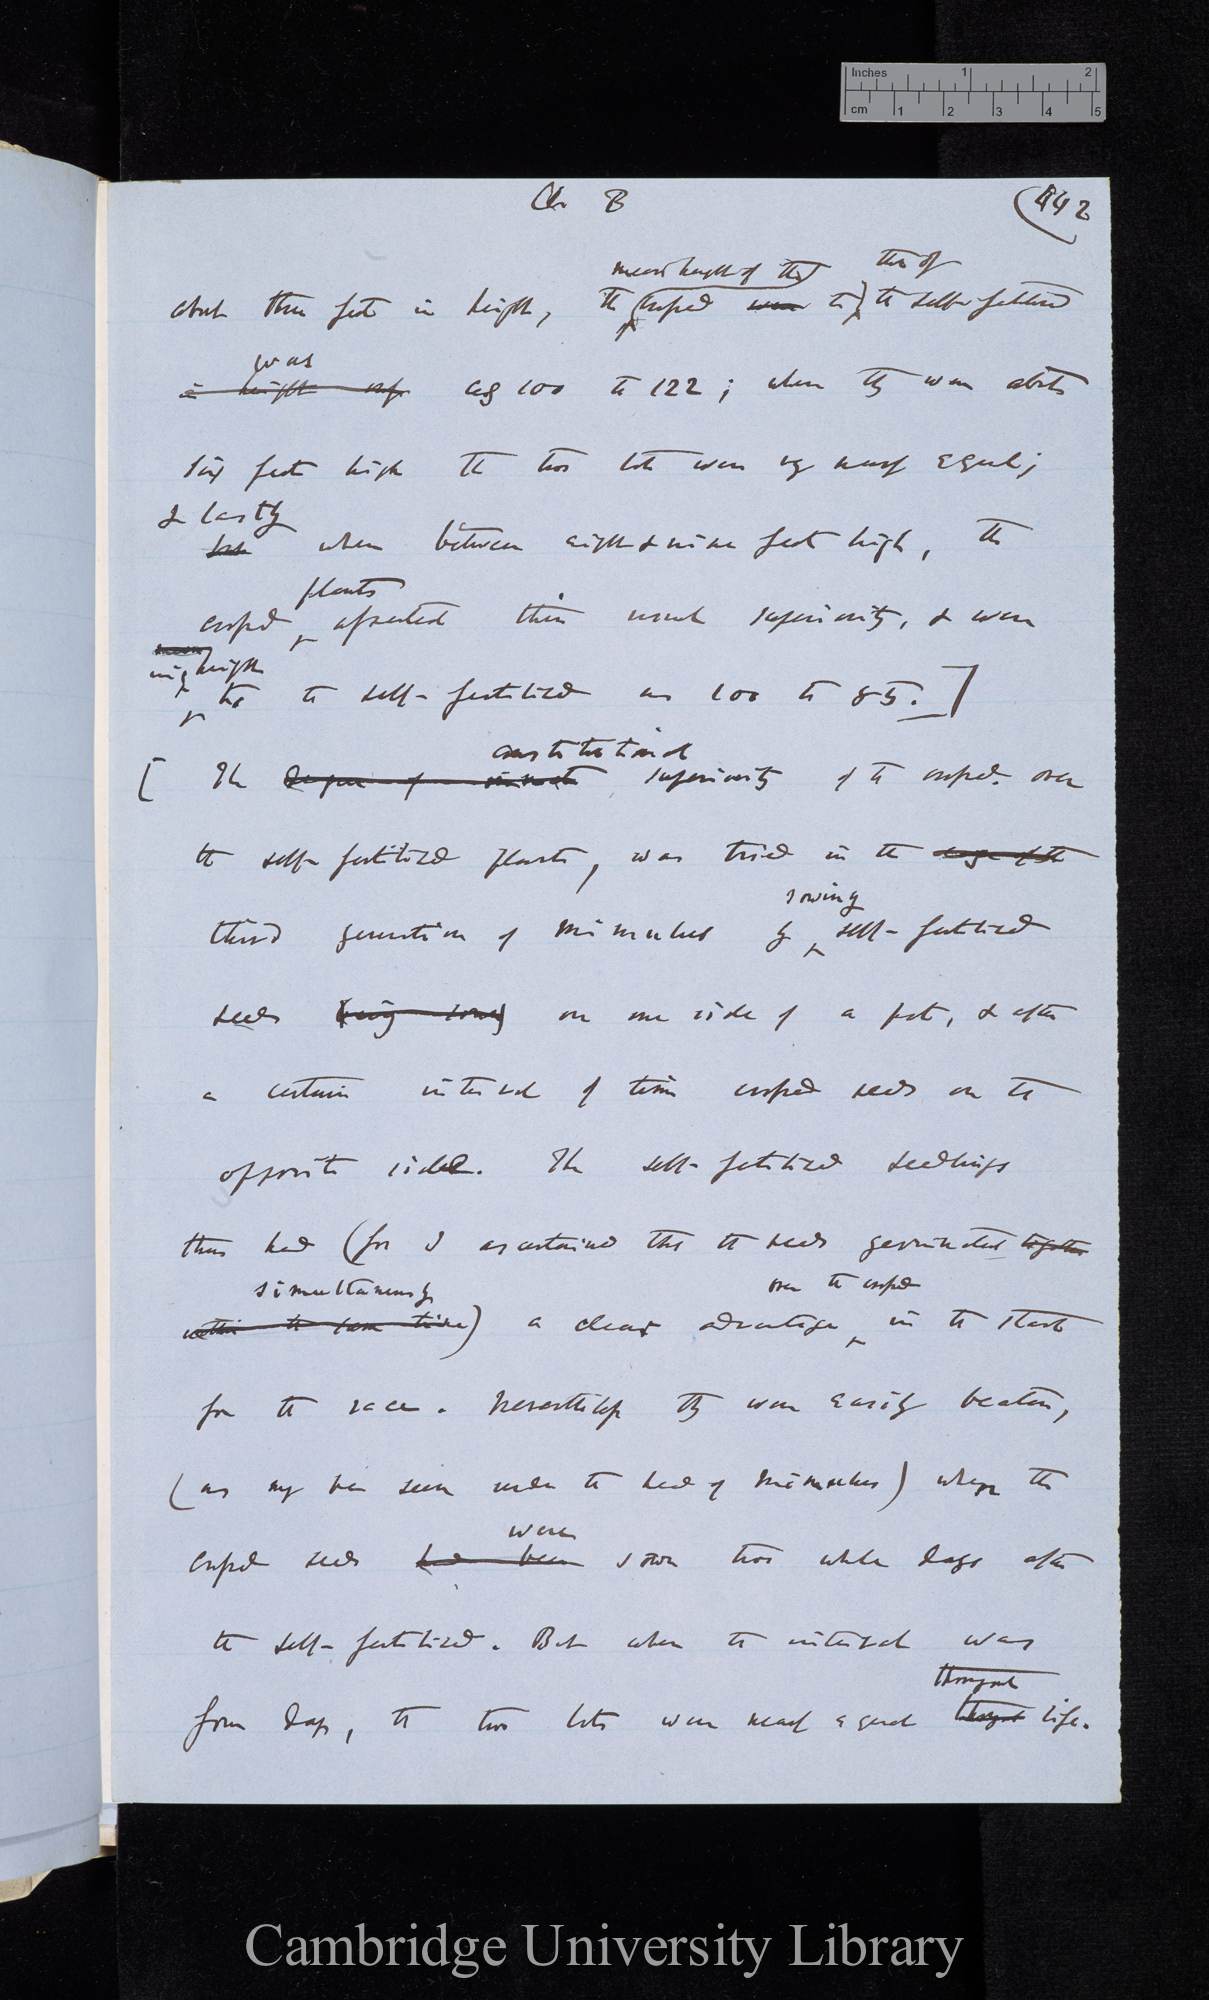 Inches 1 2
cm 1 2 3 4 5
Ch 8
(442
mean height of the that of
about three feet in height, the crossed were to the self-fertilised
was
in height as 100 to 122; when they were about
six feet high the two lots were very nearly equal;
& lastly
but when between eight & nine feet high, the
plants
crossed asserted their usual superiority, & were
in height
to the self-fertilised as 100 to 85.]
constitutional
[ The degree of superiority of the crossed over
the self-fertilised plants, was tried in the
sowing
third generation of Mimulus by self-fertilised
seeds (being sown) on one side of a pot, & after
a certain interval of time crossed seeds on the
opposite side. The self-fertilised seedlings
thus had (for I ascertained that the seeds germinated together
simultaneously over the crossed
within the same time) a clear advantage in the start
for the race. Nevertheless they were easily beaten,
(as may be seen under the head of Mimulus) when the
were
crossed seeds had been sown two whole days after
the self-fertilised. But when the interval was
throughout
four days, the two lots were nearly equal throughout life.
Cambridge University Library